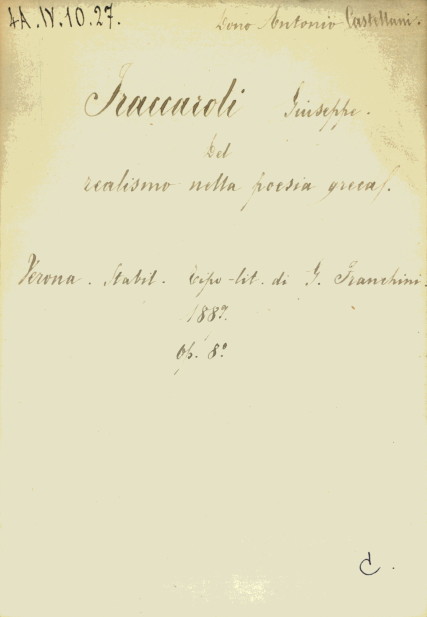 4A.IV.10.27.
Dono Antonio Castellani.
Fraccaroli Giuseppe.
Del
realismo nella poesia greca.
Verona. Stabil. Tipo-lit. di G. Franchini.
1887.
Op. 8°
C.